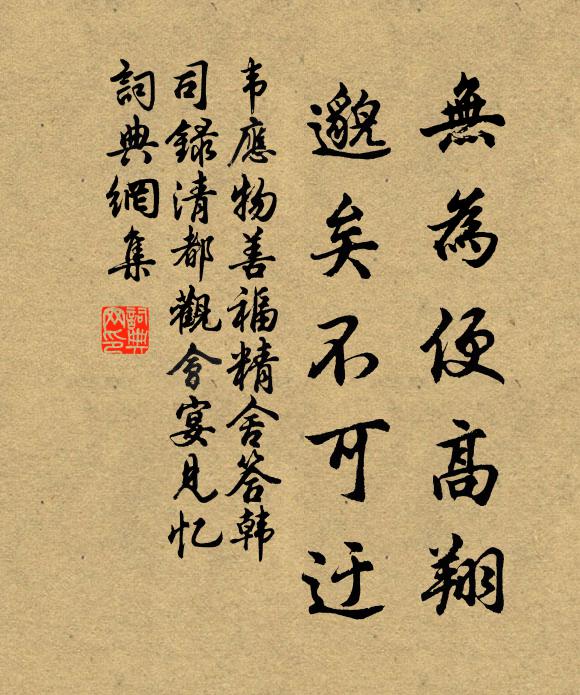 無為便高翔
邈矣不可迂
韦應物善福精舍答韩
司錄清都觀會宴見忆
詞典網集
詞典
网印